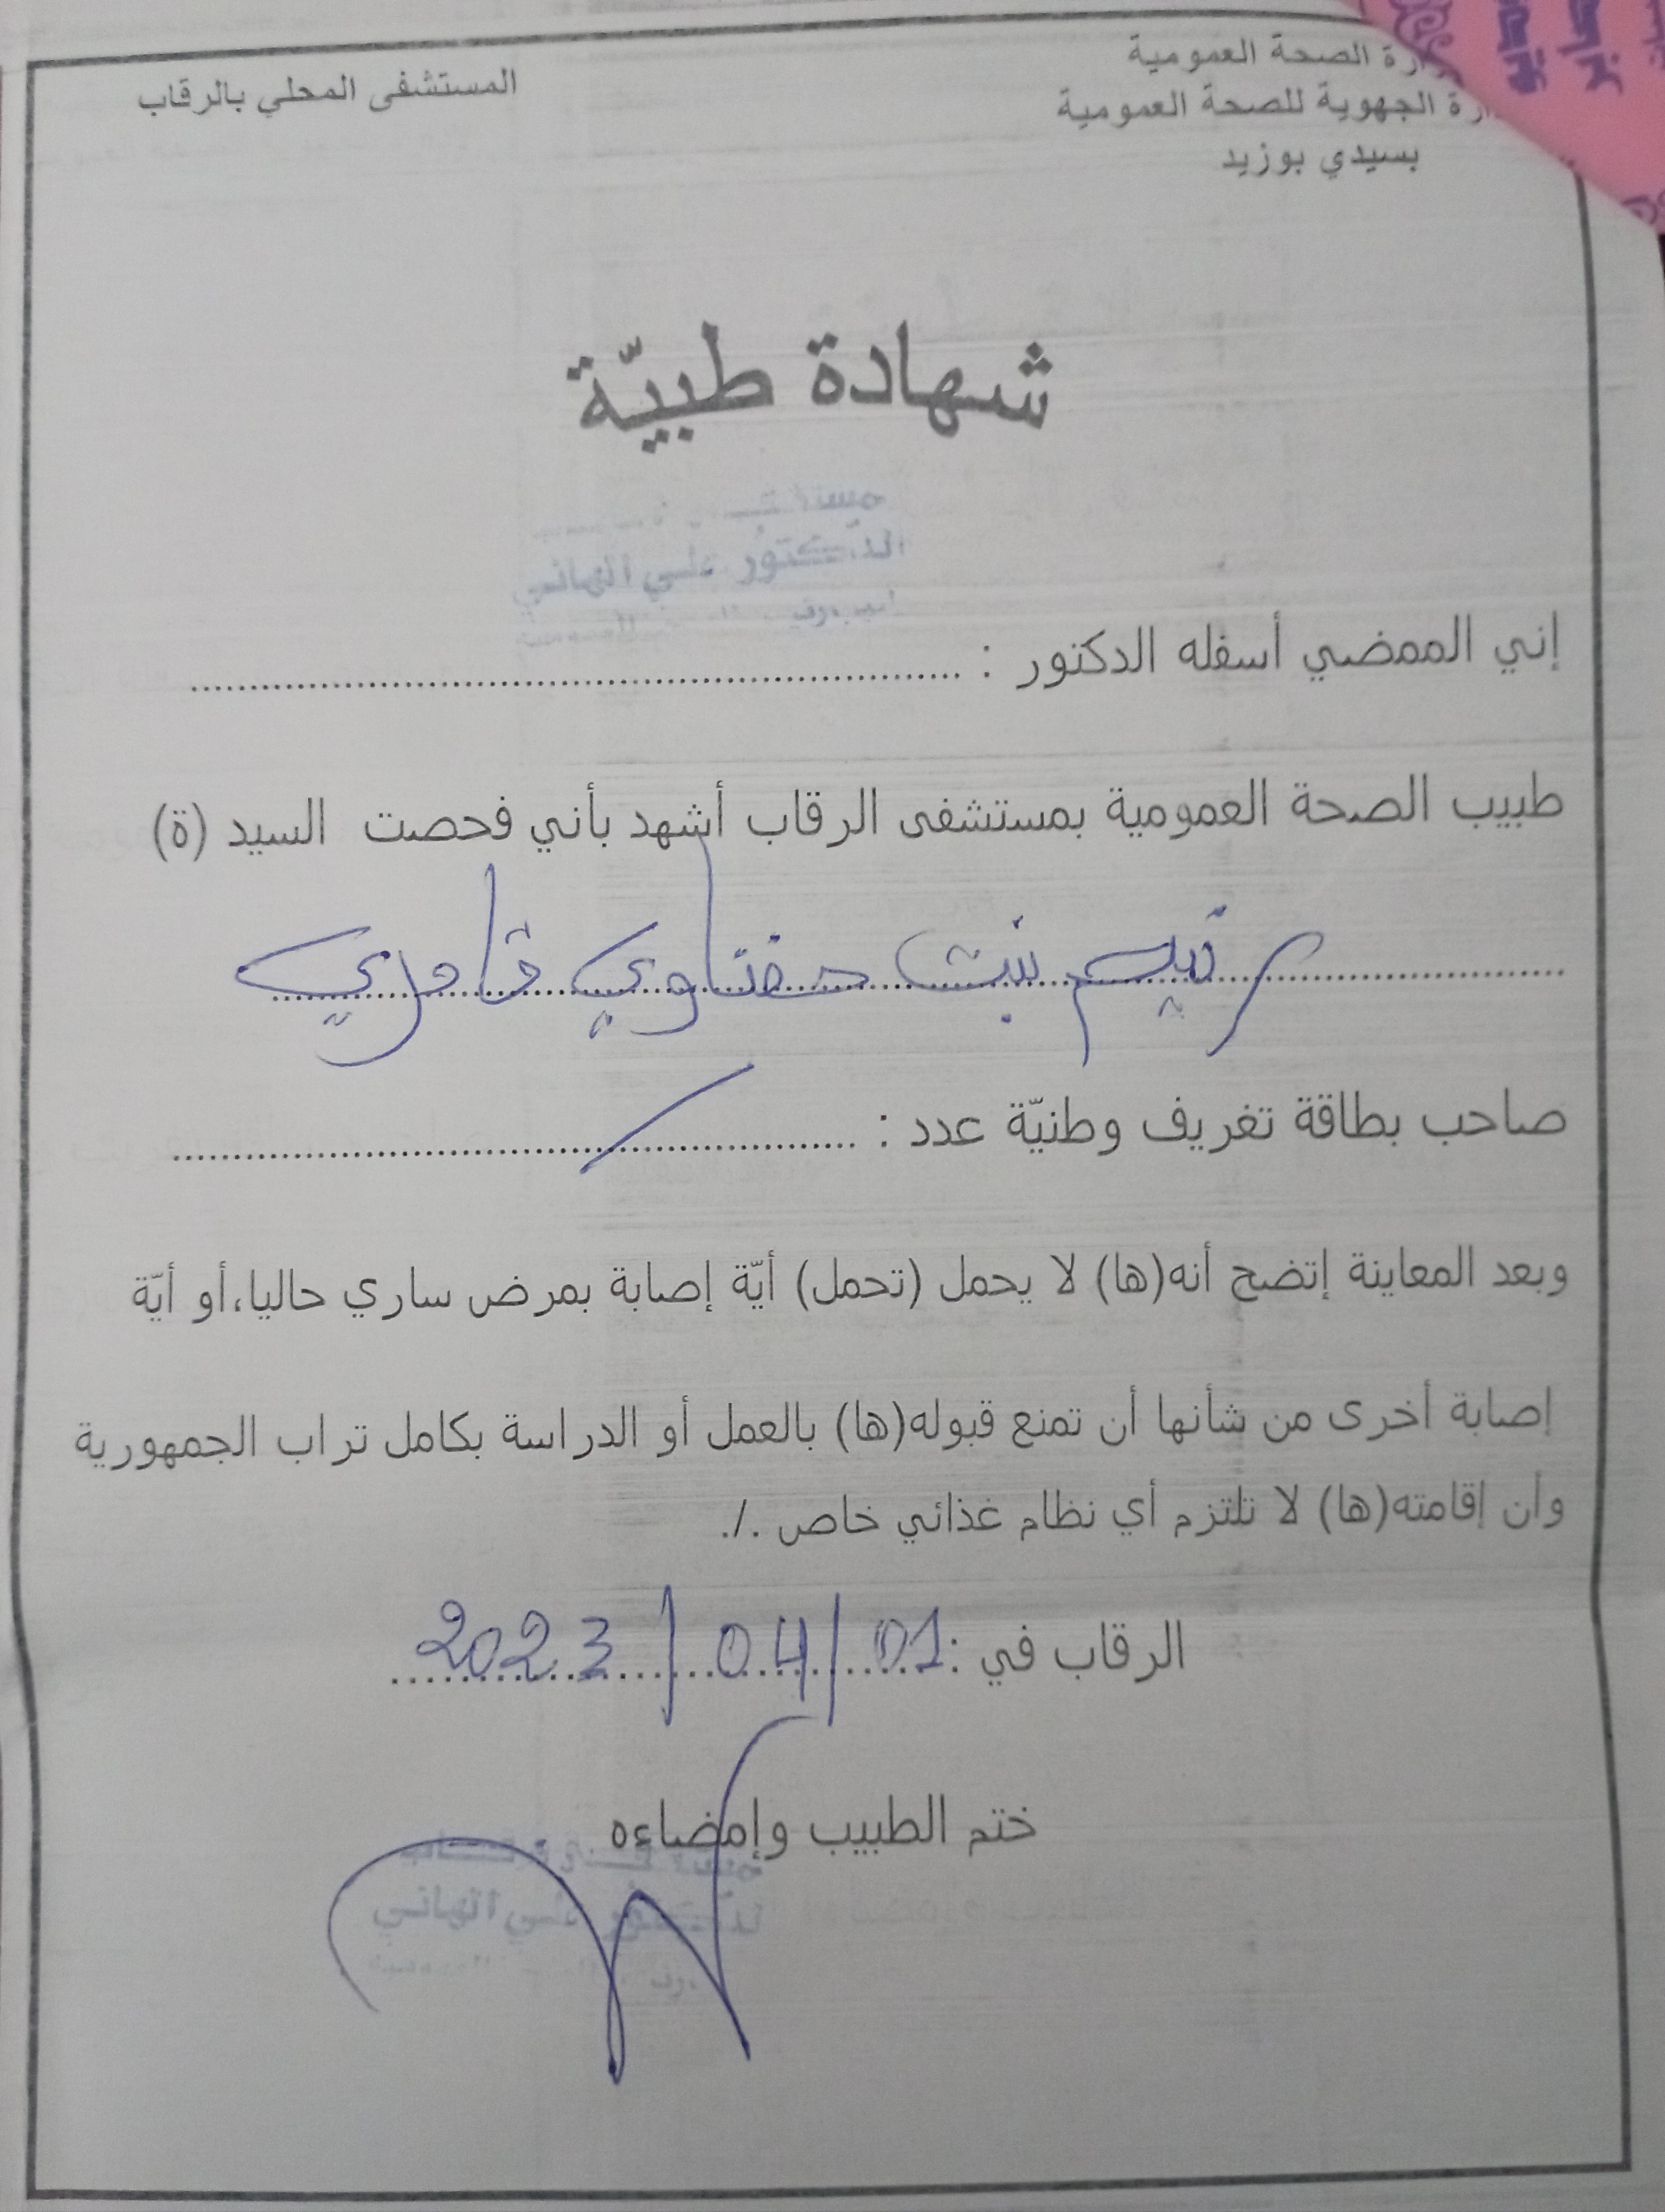 وزارة الصحة العمومية
الإدارة الجهوية للصحة العمومية
بسيدي بوزيد
المستشفى المحلي بالرقاب
شهادة طبيّة
الدكتور علي التهامي
إني الممضي أسفله الدكتور : ........................................
طبيب الصحة العمومية بمستشفى الرقاب أشهد بأني فحصت السيد (ة)
بنت حفناوي قادري
صاحب بطاقة تغريف وطنيّة عدد : ......../........
وبعد المعاينة إتضح أنه(ها) لا يحمل (تحمل) أيّة إصابة بمرض ساري حاليا،أو أيّة
إصابة أخرى من شأنها أن تمنع قبوله(ها) بالعمل أو الدراسة بكامل تراب الجمهورية
وأن إقامته(ها) لا تلتزم أي نظام غذائي خاص ./.
الرقاب في : 01/04/2023
ختم الطبيب وإمضاءه